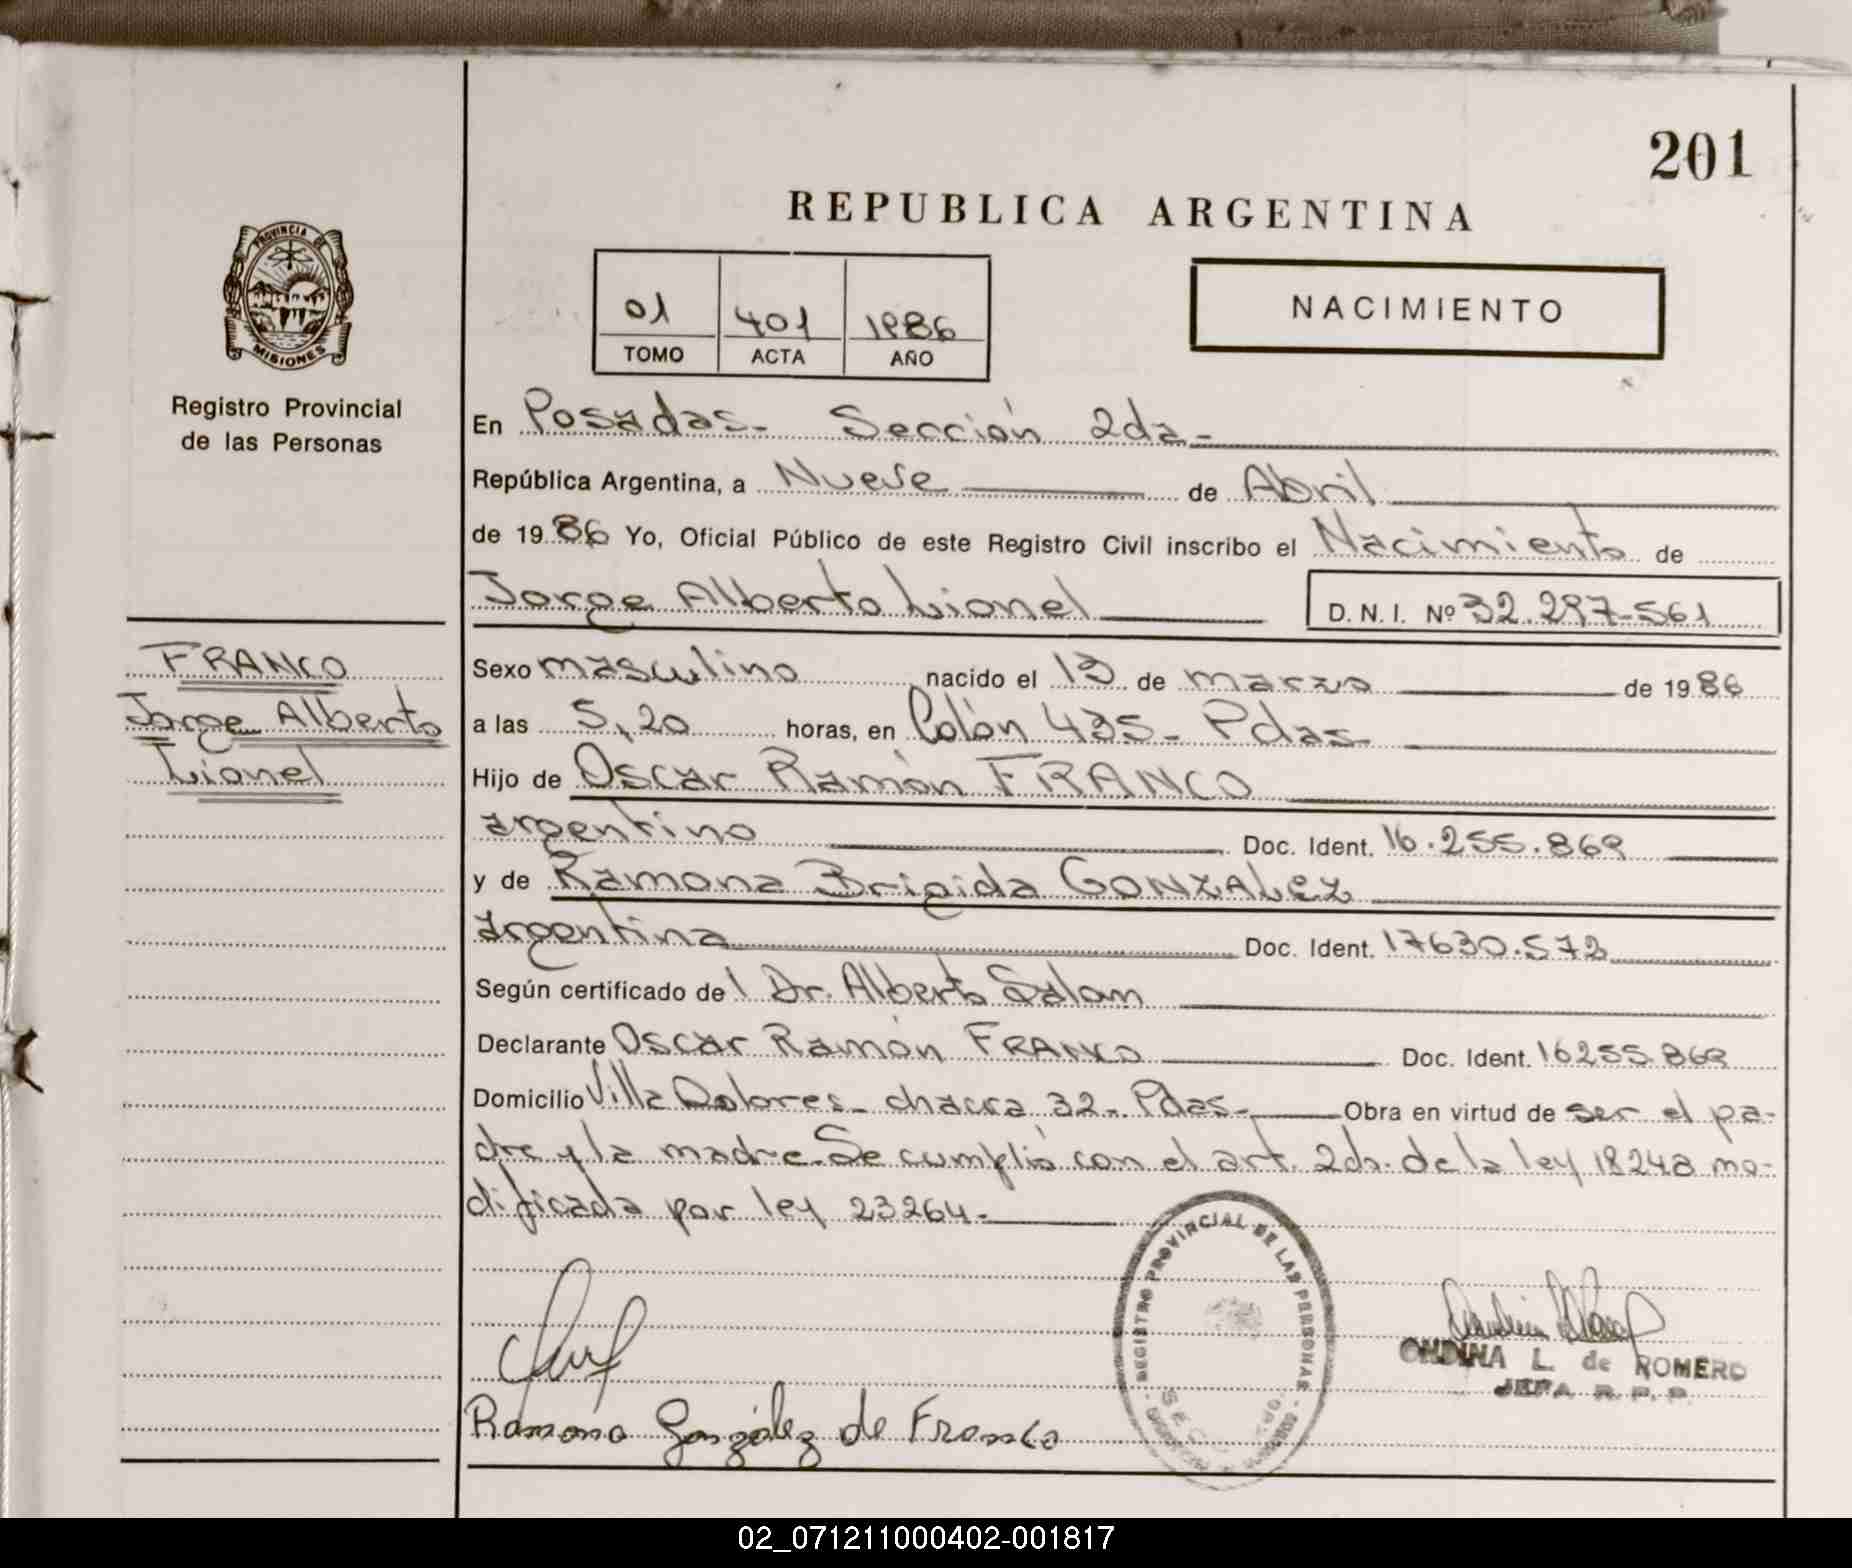 201
REPUBLICA ARGENTINA
PROVINCIA DE
MISIONES
Registro Provincial
de las Personas
01 401 1986
TOMO ACTA AÑO
NACIMIENTO
En Posadas- Sección 2da-
República Argentina, a Nueve de Abril
de 1986 Yo, Oficial Público de este Registro Civil inscribo el Nacimiento de
Jorge Alberto Lionel D. N. I. Nº 32.297.561
FRANCO
Jorge Alberto
Lionel
Sexo masculino nacido el 13 de marzo de 1986
a las 5,20 horas, en Colón 435- Pdas-
Hijo de Oscar Ramón FRANCO
argentino Doc. Ident. 16.255.869
y de Ramona Brigida GONZALEZ
argentina Doc. Ident. 17630.573
Según certificado del Dr. Alberto
Declarante Oscar Ramón FRANCO Doc. Ident. 16255.869
Domicilio Villa Dolores- chacra 32- Pdas- Obra en virtud de ser el pa-
dre y la madre. Se cumplió con el art. 2do. de la ley 18248 mo-
dificada por ley 23264-
REGISTRO PROVINCIAL DE LAS PERSONAS
ONDINA L. de ROMERO
JEFA R. P. P.
Ramona González de Franco
02_071211000402-001817